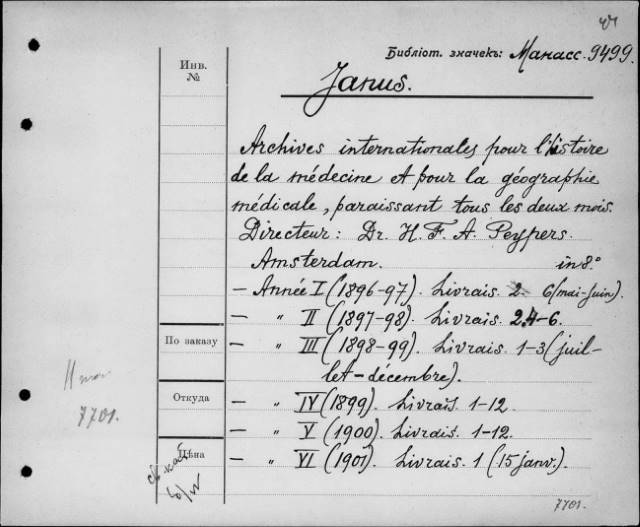 Библіот. значекъ: Манасс. 9499.
Инв.
№
Janus.
Archives internationales pour l'histoire
de la médecine et pour la géographie
médicale, paraissant tous les deux mois.
Directeur: Dr. H. F. A. Peypers.
Amsterdam. in 8°
— Année I (1896-97). Livrais. 2 6 (mai-juin).
— „ II (1897-98). Livrais. 2.4-6.
По заказу
— „ III (1898-99). Livrais. 1-3 (juil-
let-décembre).
Откуда
— „ IV (1899). Livrais. 1-12.
— „ V (1900). Livrais. 1-12.
Цѣна
— „ VI (1901). Livrais. 1 (15 janv.).
7701.
7701.